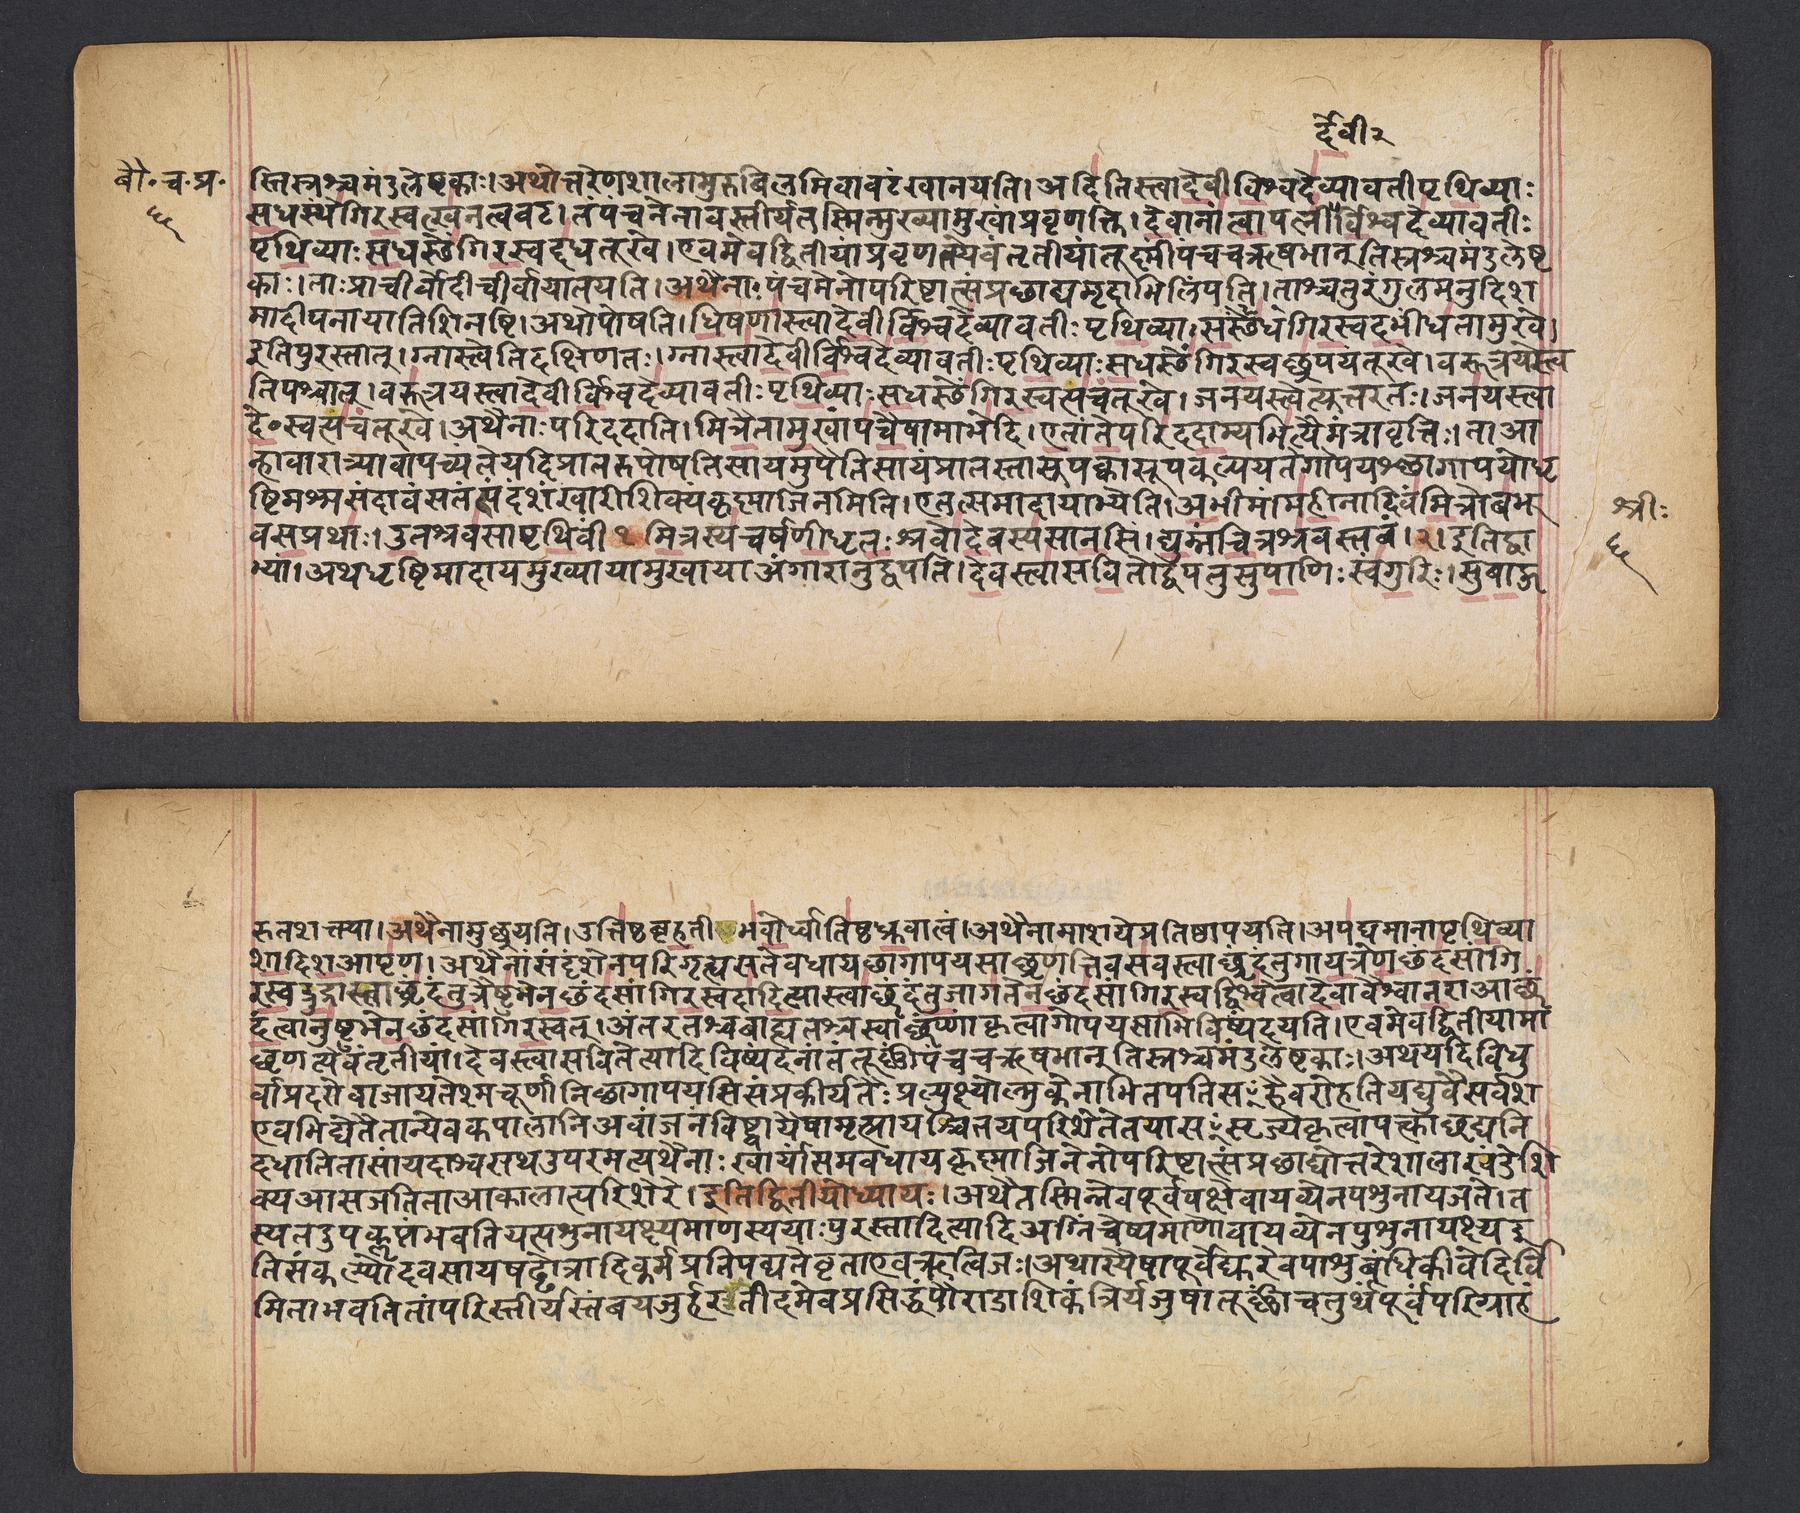 र्देवी २
बौ॰ च॰ प्र॰
६
स्तिस्रश्चमंडलेष्टकाः। अथोत्तरेणशालामुरुबिलमिवावटंखानयति। अदितिस्त्वादेवीविश्वदेव्यावतीपृथिव्याः
सधस्थेंगिरस्वत्खनत्ववट। तंपचनेनावस्तीर्यतस्मिन्मुख्यामुखांप्रवृणक्ति। देवानांत्वापत्नीर्विश्वदेव्यावतीः
पृथिव्याः सधस्छेंगिरस्वद्दधतूखे। एवमेवद्वितीयांप्रवृणत्त्येवंतृतीयांतूष्मींपंचचऋषभान्तिस्रश्चमंडलेष्ट
काः। ताःप्राचीर्वोदीचीर्वायातयति। अथैनाःपचनेनोपरिष्टात्संप्रछाद्यमृदाभिलिंपति। ताश्चतुरंगुलमनुदिश
मादीपनायातिशिनष्टि। अथोपोषति। धिषणास्त्वादेवीर्विश्वदेव्यावतीः पृथिव्या। सस्छेधंगिरस्वदभींधतामुखे।
इतिपुरस्तात्। ग्नास्त्वेतिदक्षिणतः। ग्नास्त्वादेवीर्विश्वदेव्यावतीःपृथिव्याःसधस्छेंगिरस्वछ्रपयतूखे। वरूत्रयस्त्व
तिपश्चात्। वरूत्रयस्त्वादेवीर्विश्वदेव्यावतीः पृथिव्याः सधस्छेंगिरस्वत्पचंतूखे। जनयस्त्वेत्युत्तरतः। जनयस्त्वा
दे॰स्वत्पचंतूखे। अथैनाःपरिददाति। मित्रैतामुखांपचैषामाभेदि। एतांतेपरिददाम्यभित्यैमंत्रावृत्तिः। ताआ
न्हावारात्र्यावापच्यतेयदिप्रातरुपोषतिसायमुपैतिसायंप्रातस्तासुपक्वासूपवलृप्येयतेगोपयश्छागापयोधृ
ष्टिमश्मसंदावंसतंसंदंशंखारीशिक्यंकृष्माजिनमिति। एतत्समादायाभ्येति। अभीमांमहीनादिवंमित्रोबभू
श्रीः
६
वसप्रथाः। उतश्रवसापृथिवीं १ मित्रस्यचर्षणीधृतः श्रवोदेवस्यसानसिं। द्युम्नंचित्रश्रवस्तवं। २। इतिद्वा
भ्यां। अथधृष्टिमादायमुख्यायामुखायाअंगारानुद्वपति। देवस्त्वासवितोद्वपतुसुपाणिः स्वंगुरिः। सुबाहु
रुतशक्त्या। अथैनामुछ्रयति। उत्तिष्ठबृहतीभवोर्ध्वातिष्ठध्रुवात्वं। अथैनामाशयेप्रतिष्ठापयति। अपद्यमानापृथिव्या
शादिशआपृण। अथैनांसंदंशेनपरिगृत्द्यसतेवधायछागापयसाछृणत्तिवसवस्त्वाछृंदंतुगायत्रेणछंदसांगि
रस्वद्रुद्रास्त्वाछृंदंतुत्रैष्टुभेनछंदसांगिरस्वदादित्यास्त्वाछृंदंतुजागतेनछंदसांगिरस्वद्विश्वेत्वादेवावैश्वानराआछृं
दंत्वानुष्टुभेनछंदसांगिरस्वत्। अंतरतश्चबाह्यतश्चस्वाछृंण्णांकृत्वागोपयसाभिविष्यंदयति। एवमेवद्वितीयामा
छृणत्त्येवंतृतीयां। देवस्त्वासवितेत्यादिविष्यंदनांतंतूष्णींपंचचऋषभान्तिस्रश्चमंडलेष्टकाः। अथयदिविधु
र्वाप्रदरोवाजायतेश्मचूर्णानिछागापयसिसंप्रकीर्यतैः प्रत्युक्ष्योल्मुकेनाभितपतिसꣳहैवरोहतियद्युवैसर्वश
एवभिद्येतैतान्येवकपालानिअवांजनंपिष्ट्वायैषामृत्प्रायश्चित्तयपरिशेतेतयासꣳसृज्यकृत्वापक्त्काछृद्यनि
दधातितासांयदाश्चसथउपरमत्यथैनाः खार्यासमवधायकृष्माजिनेनोपरिष्टात्संप्रछाद्योत्तरेशालाखंडेशि
क्यआसजतिताआकालात्परिशेरे। इतिद्वितीयोध्यायः। अथैतस्मिन्नेवपूर्वपक्षेवायव्येनपशुनायजते। त
स्यतदुपक्लृप्तंभवतियत्पशुनायक्ष्यमाणस्ययाःपुरस्तादित्यादिअग्निंचेष्यमाणोवायव्येनपुशुनायक्ष्यइ
तिसंकल्प्योदवसायषड्ढोत्रादिकर्मप्रतिपद्यतेवृताएवऋत्विजः। अथास्यैषापूर्वेद्युरेवपाशुबंधिकीवेदिर्वि
मिताभवतितांपरिस्तीर्यस्तंबयजुर्हरतीदमेवप्रसिद्धंपौराडाशिकंत्रिर्यजुषातूष्णींचतुर्थंपूर्वंपरिग्राहं